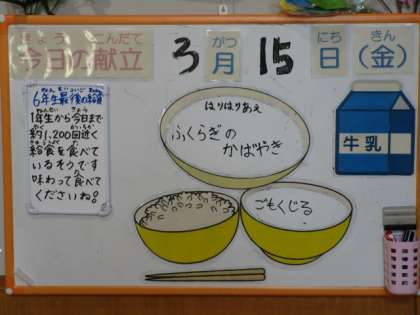 きょう こんだて
今日の献立
3月15日(金)
がつ
にち
きん
6年生最後の給食
1年生から今日まで
約1,200回近く
給食を食べて
いるそうです
味わって食べて
くださいね!
はりはりあえ
ふくらぎの
かばやき
牛乳
ごもくじる